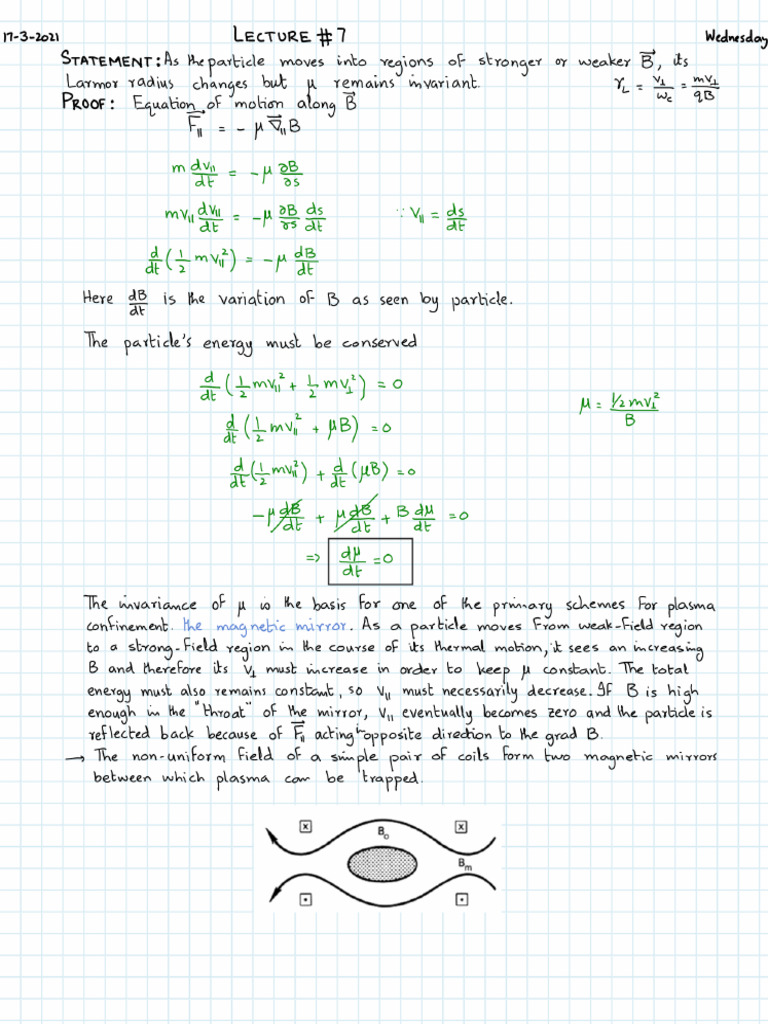 17-3-2021 LECTURE #7 Wednesday
STATEMENT: As the particle moves into regions of stronger or weaker B⃗, its
Larmor radius changes but μ remains invariant. r_L = v⊥/ω_c = mv⊥/qB
PROOF: Equation of motion along B⃗
F⃗∥ = - μ ∇⃗∥ B
m dv∥/dt = -μ ∂B/∂s
mv∥ dv∥/dt = -μ ∂B/∂s ds/dt ∵ v∥ = ds/dt
d/dt (1/2 mv∥²) = -μ dB/dt
Here dB/dt is the variation of B as seen by particle.
The particle's energy must be conserved
d/dt (1/2 mv∥² + 1/2 mv⊥²) = 0
μ = 1/2 mv⊥²/B
d/dt (1/2 mv∥² + μB) = 0
d/dt (1/2 mv∥²) + d/dt (μB) = 0
-μ dB/dt + μ dB/dt + B dμ/dt = 0
=> dμ/dt = 0
The invariance of μ is the basis for one of the primary schemes for plasma
confinement. the magnetic mirror. As a particle moves from weak-field region
to a strong-field region in the course of its thermal motion, it sees an increasing
B and therefore its v⊥ must increase in order to keep μ constant. The total
energy must also remains constant, so v∥ must necessarily decrease. If B is high
enough in the "throat" of the mirror, v∥ eventually becomes zero and the particle is
reflected back because of F⃗∥ acting in opposite direction to the grad B.
→ The non-uniform field of a simple pair of coils form two magnetic mirrors
between which plasma can be trapped.
B₀
B_m